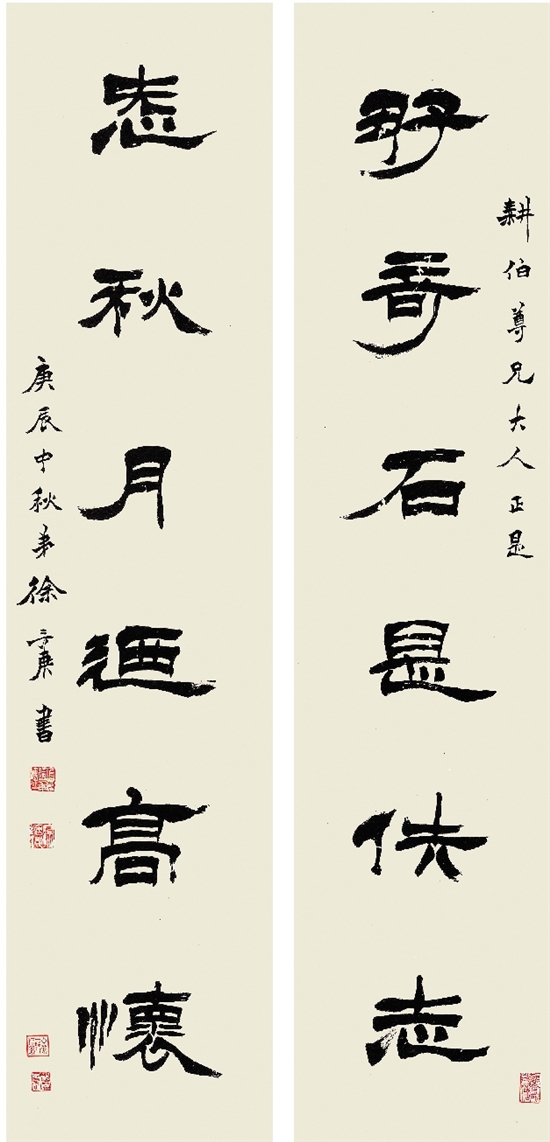 耕伯尊兄大人正是
好奇石是佚志
㤅秋月迺高懷
庚辰中秋弟徐三庚書